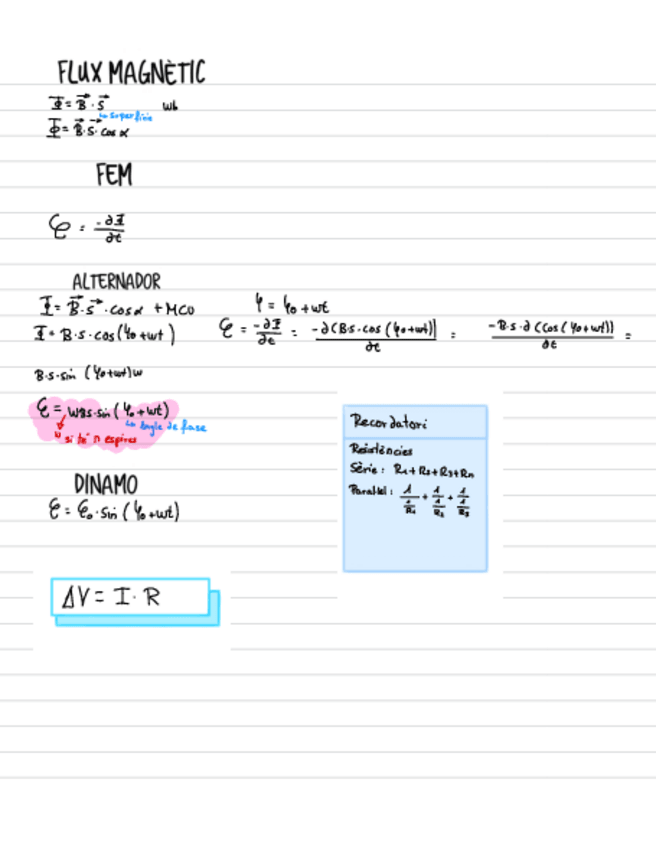 FLUX MAGNÈTIC
Φ = B⃗ · S⃗ Wb
↳ superfície
Φ = B⃗ · S⃗ · cos α
FEM
ℰ = -∂Φ/∂t
ALTERNADOR
Φ = B⃗ · S⃗ · cos α + MCU φ = φ₀ + wt
Φ = B · S · cos(φ₀ + wt) ℰ = -∂Φ/∂t = -∂(B·S·cos(φ₀+wt))/∂t = -B·S·∂(cos(φ₀+wt))/∂t =
B·S·sin (φ₀+wt)w
ℰ = WBS·sin(φ₀ + wt)
↳ angle de fase
si té n espires
DINAMO
ℰ = ℰ₀ · sin (φ₀ + wt)
ΔV = I · R
Recordatori
Resistències
Sèrie: R₁ + R₂ + R₃ + Rn
Paral·lel: 1/(1/R₁) + 1/(1/R₂) + 1/(1/R₃)